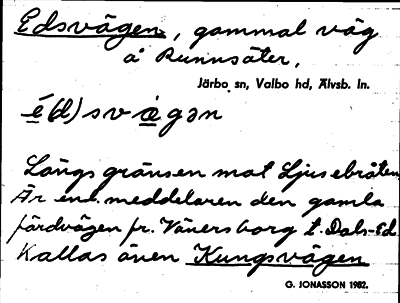 Edsvägen, gammal väg
å Runnsäter,
Järbo sn, Valbo hd, Älvsb. ln.
é(d)svægən
Längs gränsen mot Ljusebråten
Är enl. meddelaren den gamla
färdvägen fr. Vänersborg t. Dals-Ed
Kallas även Kungsvägen
G. JONASSON 1982.